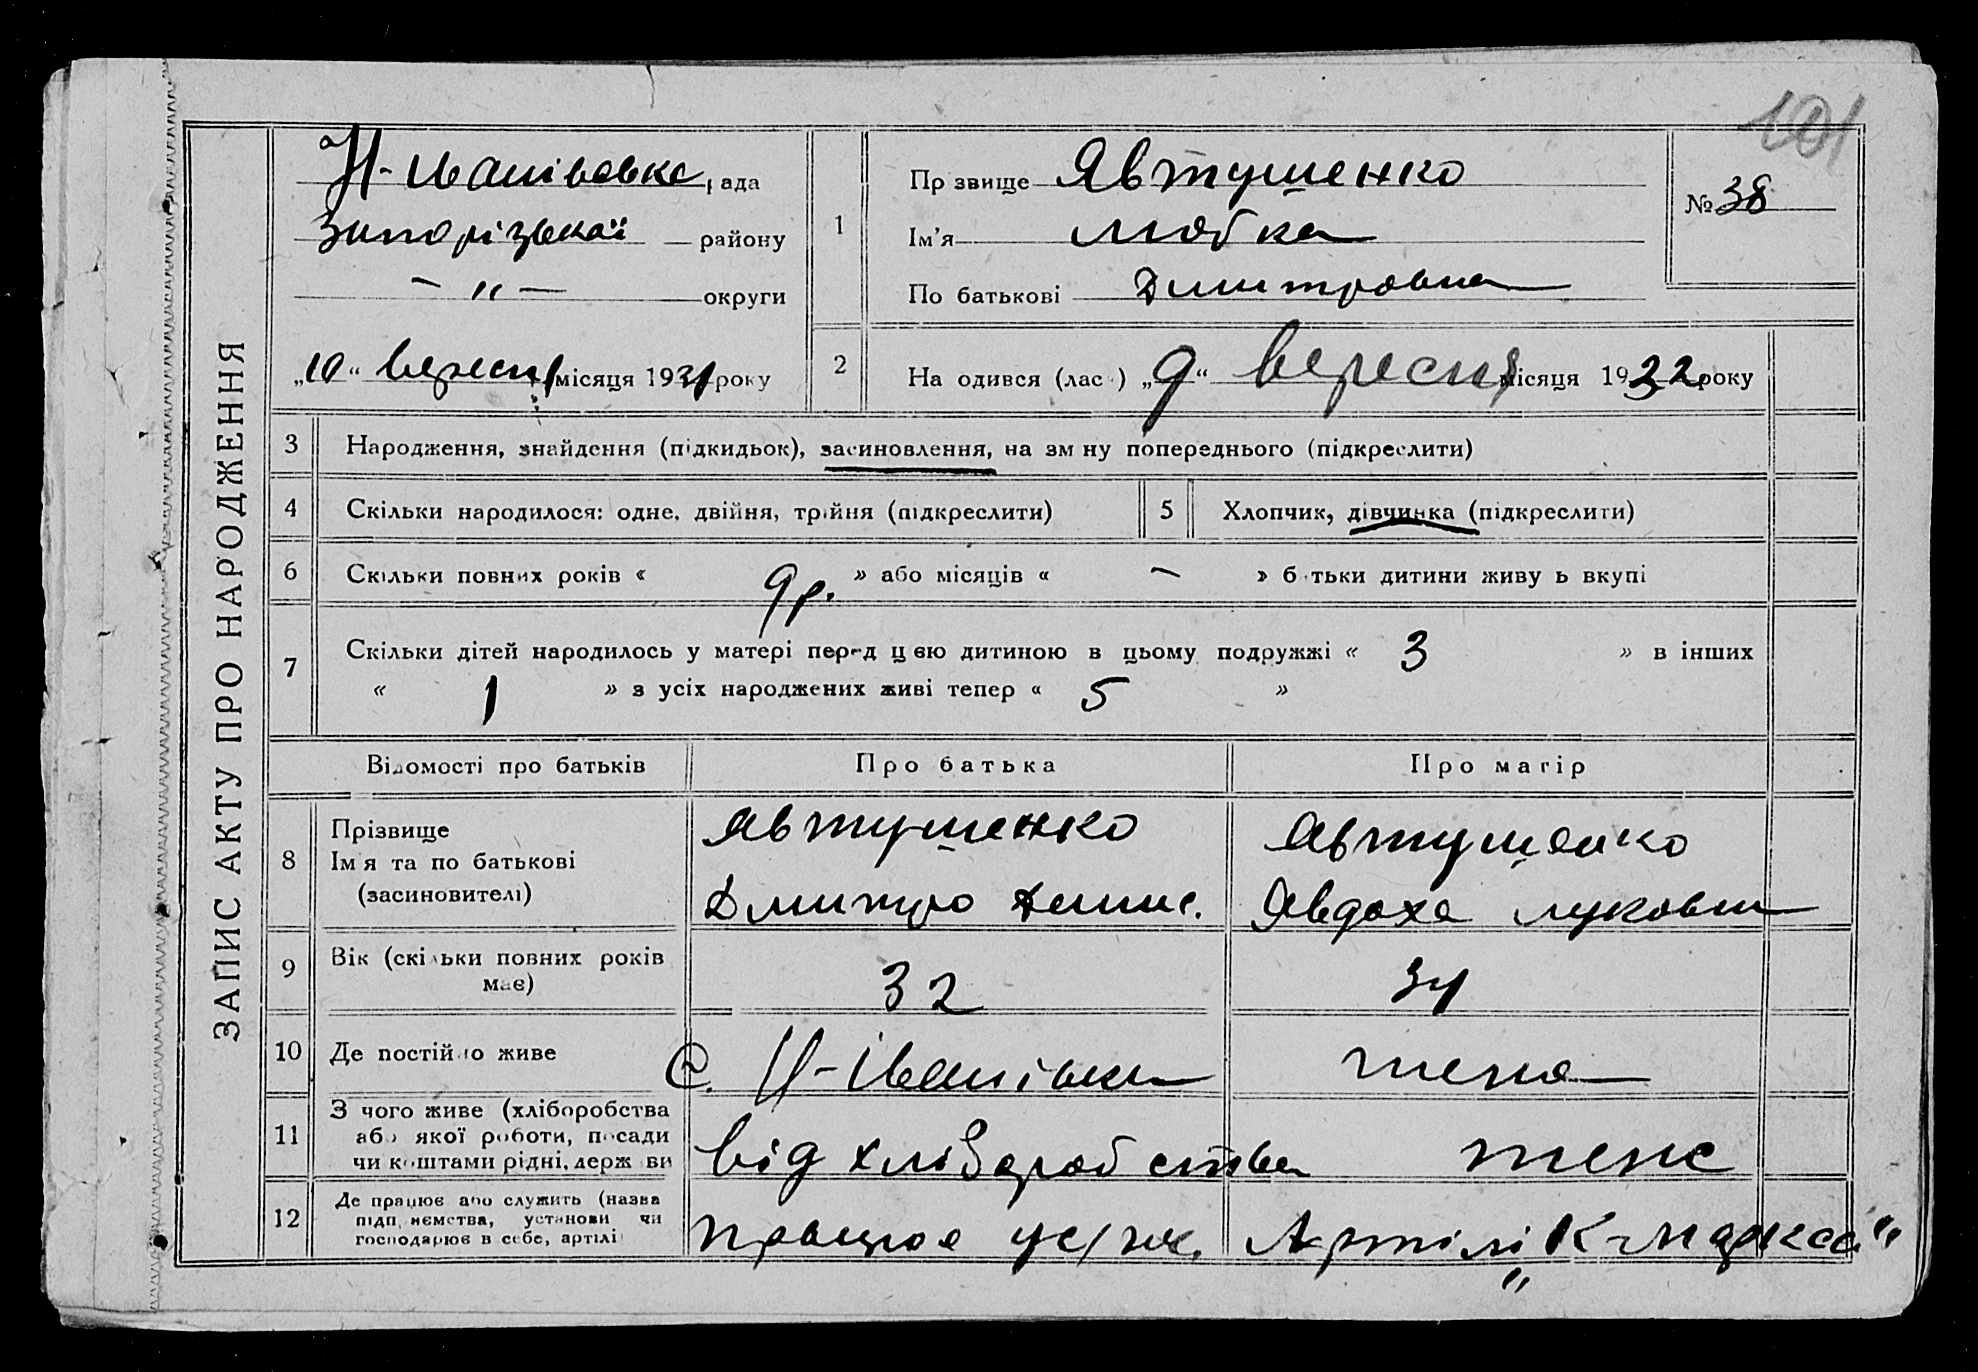 101
ЗАПИС АКТУ ПРО НАРОДЖЕННЯ
Н-Іванівська рада
Запорізької району
— „ — округи
„10“ вересня місяця 1931 року
1
Пр звище Явтушенко
Ім'я Любка
По батькові Дмитровна
№ 38
2
На одився (лас ) „9“ вересня місяця 1922 року
3 Народження, знайдення (підкидьок), засиновлення, на зм ну попереднього (підкреслити)
4 Скільки народилося: одне, двійня, трійня (підкреслити)
5 Хлопчик, дівчинка (підкреслити)
6 Скільки повних років « 9 р. » або місяців « — » б тьки дитини живу ь вкупі
7 Скільки дітей народилось у матері перед цею дитиною в цьому подружжі « 3 » в інших
« 1 » з усіх народжених живі тепер « 5 »
Відомості про батьків Про батька Про матір
8 Прізвище
Ім я та по батькові
(засиновителі)
Явтушенко
Дмитро Денис.
Явтушенко
Явдоха Луковна
9 Вік (скільки повних років
має)
32
34
10 Де постійно живе
с. Н-Іванівка
теж
11 З чого живе (хліборобства
або якої роботи, посади
чи коштами рідні, держ ви
від хліборобства
теж
12 Де працює або служить (назва
підп ємства, установи чи
господарює в себе, артілі
працює у с/г Артілі „К-Маркса“